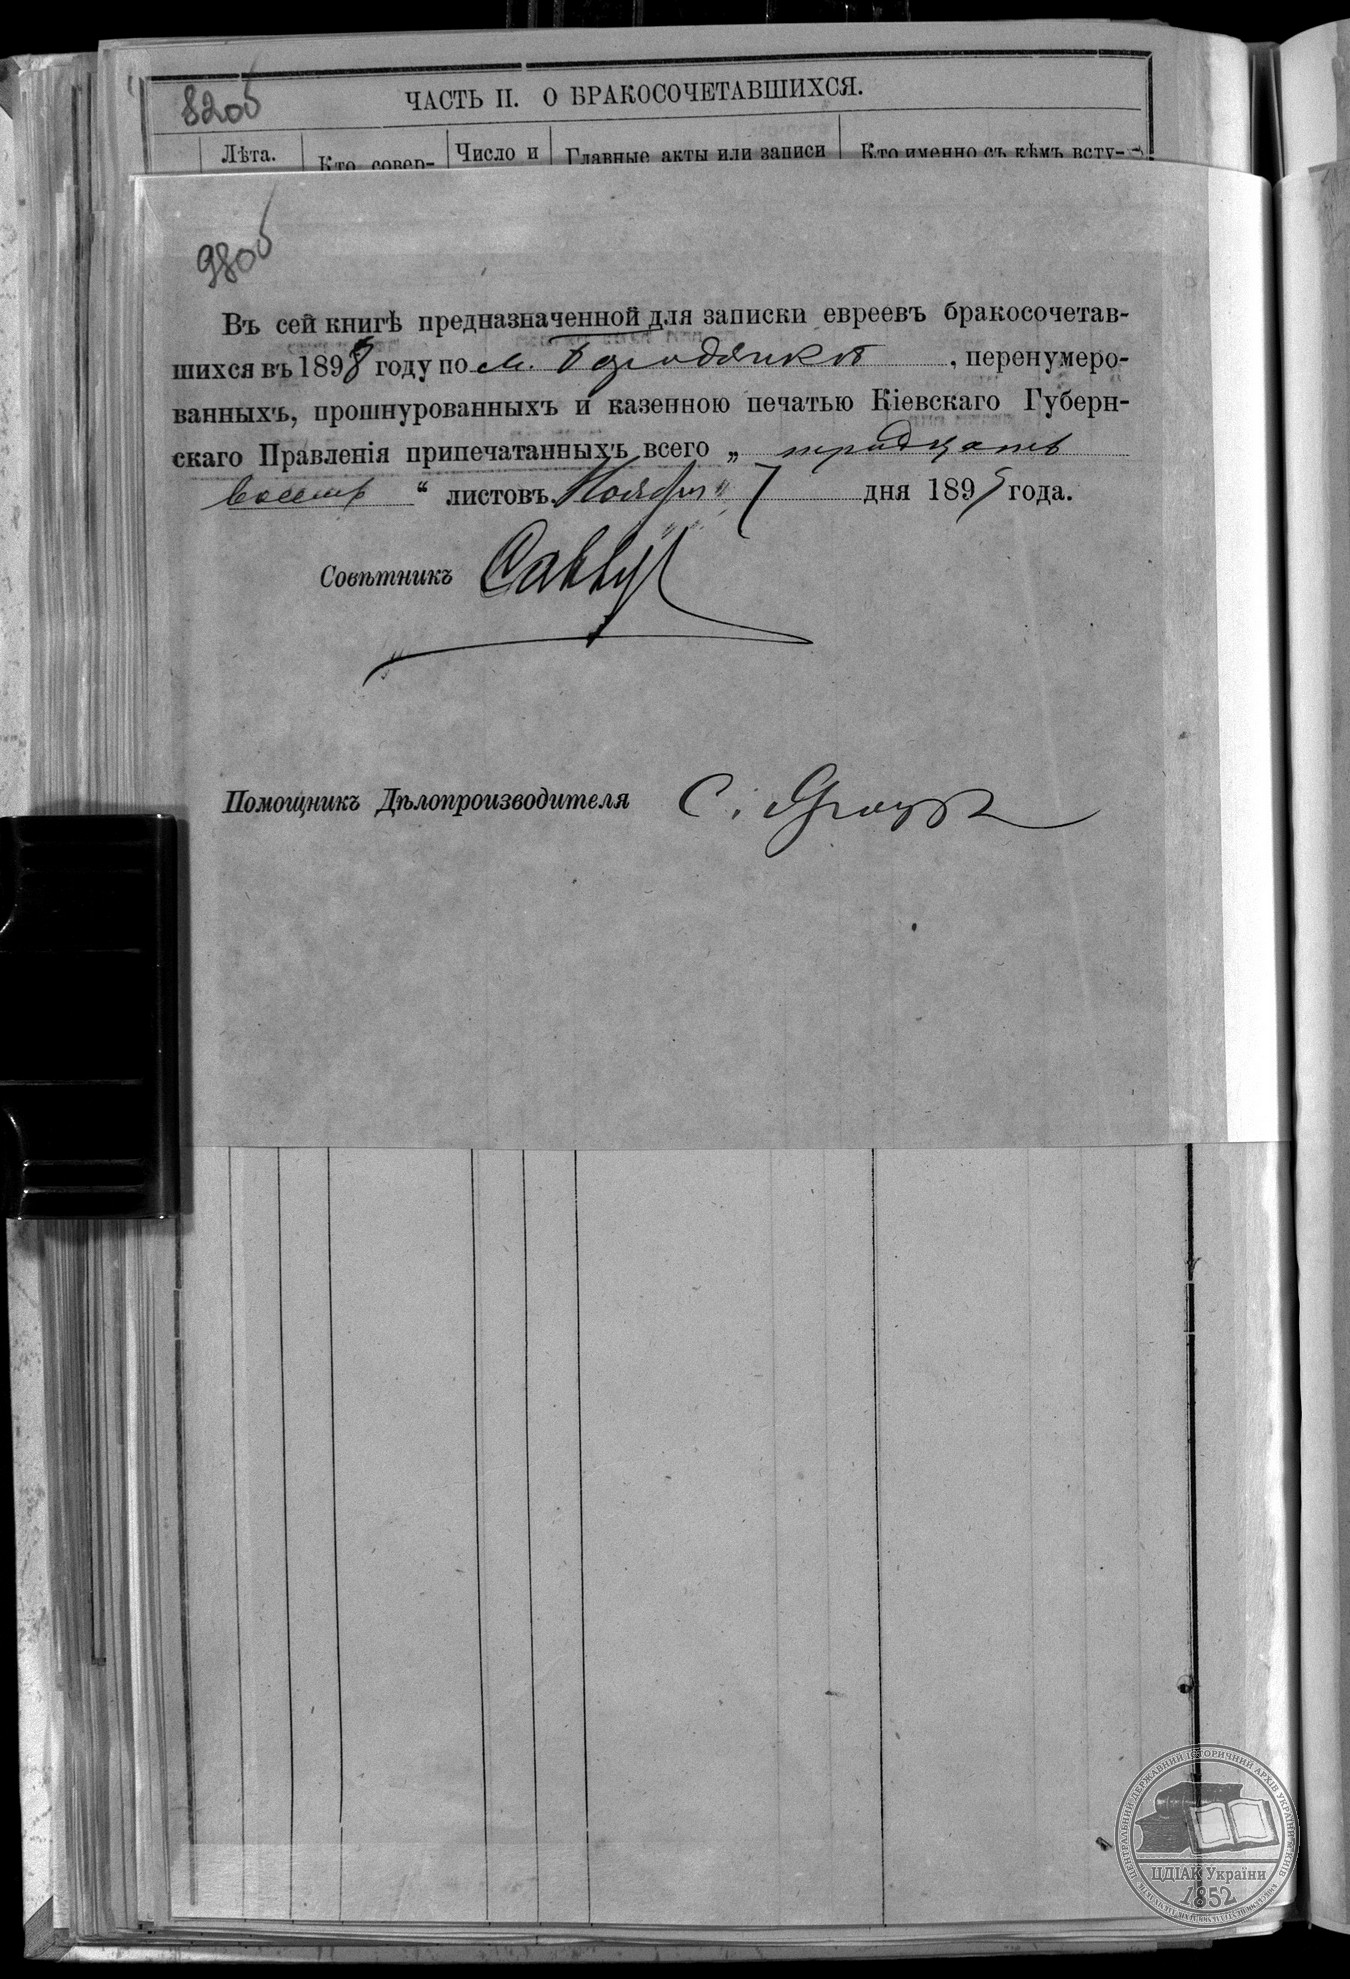 82об
ЧАСТЬ II. О БРАКОСОЧЕТАВШИХСЯ.
Лѣта.
Кто совер-
Число и
Главные акты или записи
Кто именно съ кѣмъ всту-
98об
Въ сей книгѣ предназначенной для записки евреевъ бракосочетав-
шихся въ 1898 году по м. Бородянкѣ, перенумеро-
ванныхъ, прошнурованныхъ и казенною печатью Кіевскаго Губерн-
скаго Правленія припечатанныхъ всего „ тридцать
восемь “ листовъ. Ноября „ 7 дня 1895 года.
Совѣтникъ
Помощникъ Дѣлопроизводителя С.
ЦЕНТРАЛЬНИЙ ДЕРЖАВНИЙ ІСТОРИЧНИЙ АРХІВ УКРАЇНИ, М. КИЇВ
ЦДІАК України
1852